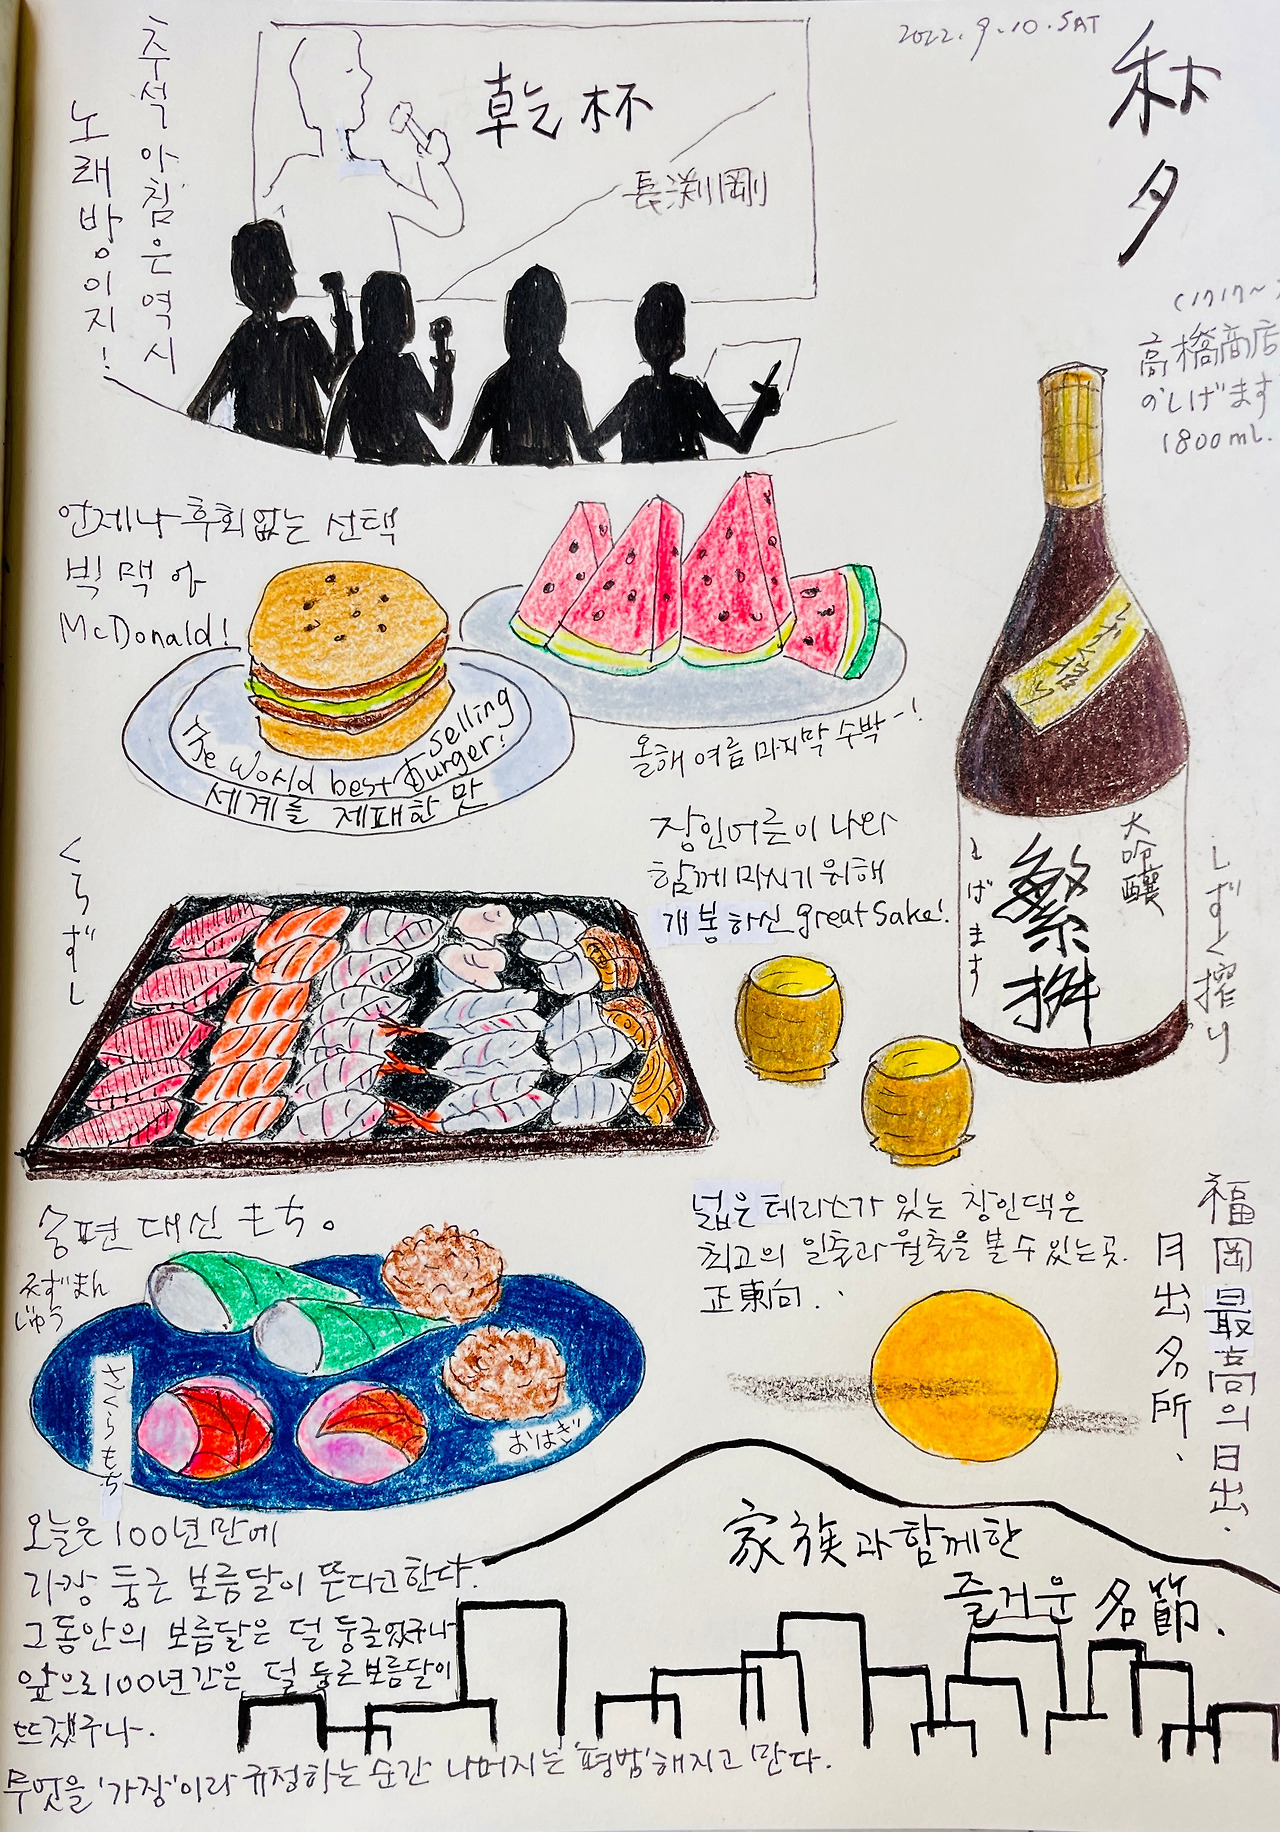 2022.9.10.SAT
秋夕
추석 아침은 역시
노래방이지!
乾杯
長渕剛
(1717~
高橋商店
のしげます
1800ml.
언제나 후회없는 선택
빅맥 of
McDonald!
The World best-selling
burger!
세계를 제패한 맛
올해 여름 마지막 수박-!
장인어른이 나와
함께 마시기 위해
개봉하신 great Sake!
大吟醸
繁桝
しげます
しずく搾り
くろずし
송편 대신 もち。
まんじゅう
さくらもち
おはぎ
넓은 테라스가 있는 장인댁은
최고의 일출과 월출을 볼 수 있는 곳.
正東向..
福岡最高의 日出.
月出名所、
오늘은 100년만에
가장 둥근 보름달이 뜬다고한다.
그동안의 보름달은 덜 둥글었구나
앞으로100년간은, 덜 둥근보름달이
뜨겠구나.
무엇을 '가장'이라 규정하는 순간 나머지는 '평범'해지고 만다.
家族과 함께한
즐거운 名節.